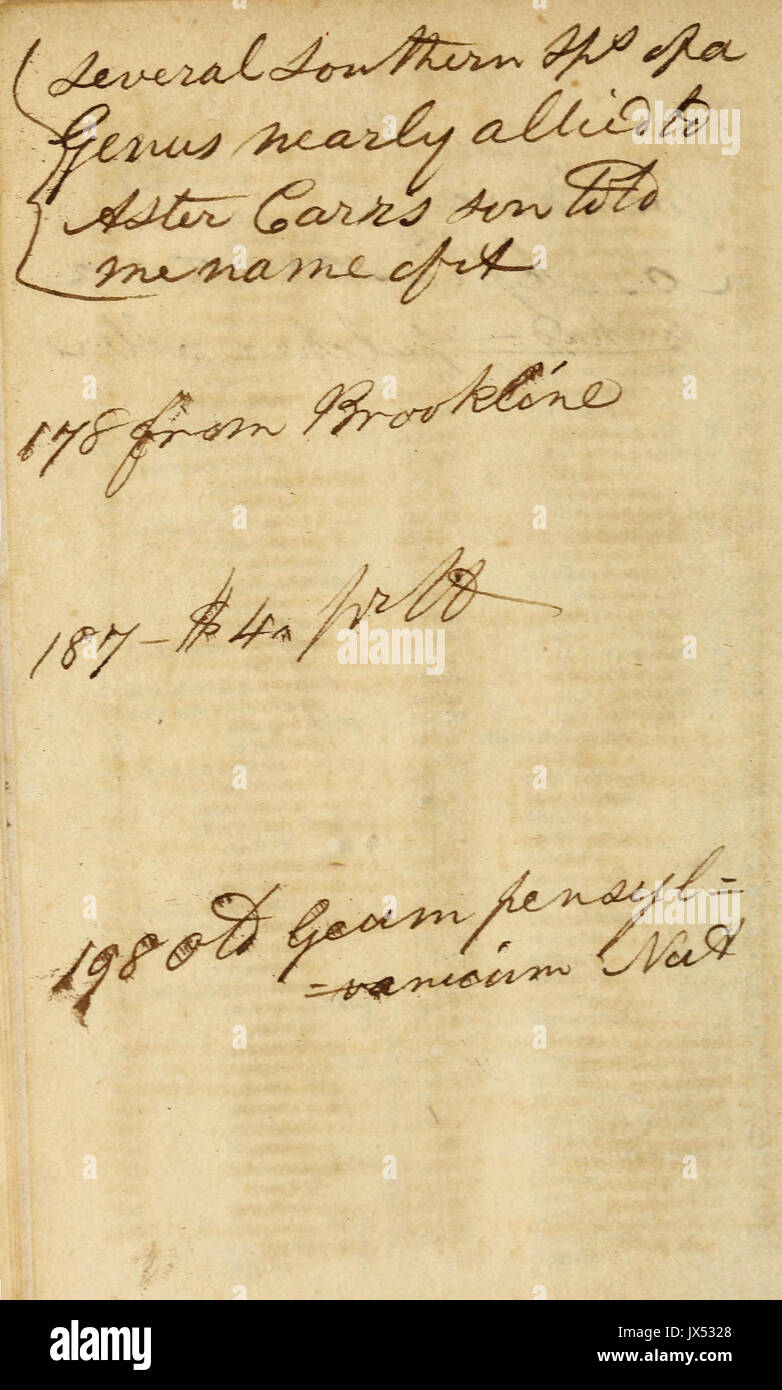 several southern sps of a
Genus nearly allied to
Aster Carrs son told
me name of it
178 from Brookline
187 - $4.
198 old Geum pensyl=
=vanicum Nutt
alamy
alamy
Image ID: JX5328
www.alamy.com